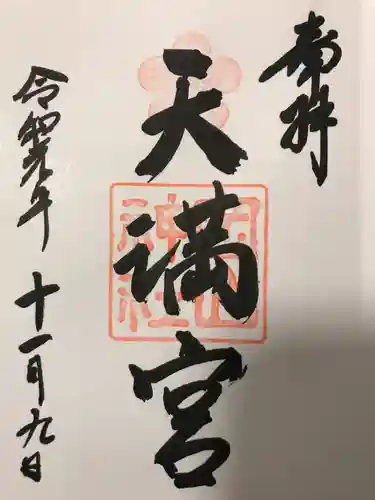 奉拝
天満宮
岡田神社
令和元年
十一月九日